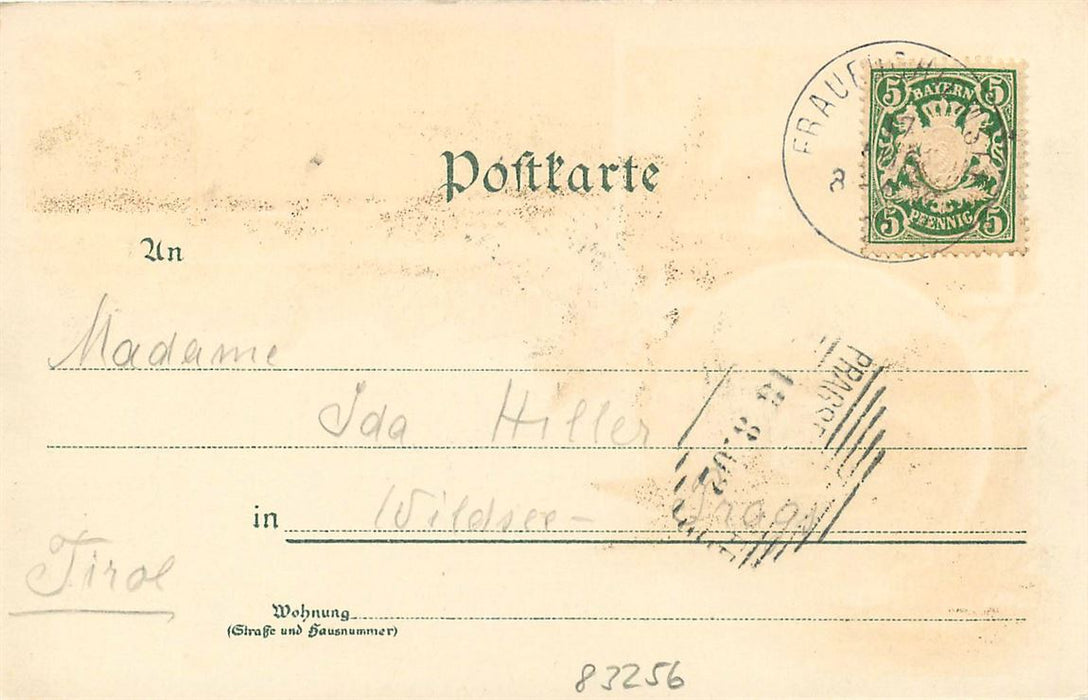 5 BAYERN 5
5 PFENNIG 5
8
Postkarte
An
Madame
Ida Hiller
in Wildsee-Prags
Tirol
Wohnung
(Straße und Hausnummer)
13 8 02
83256